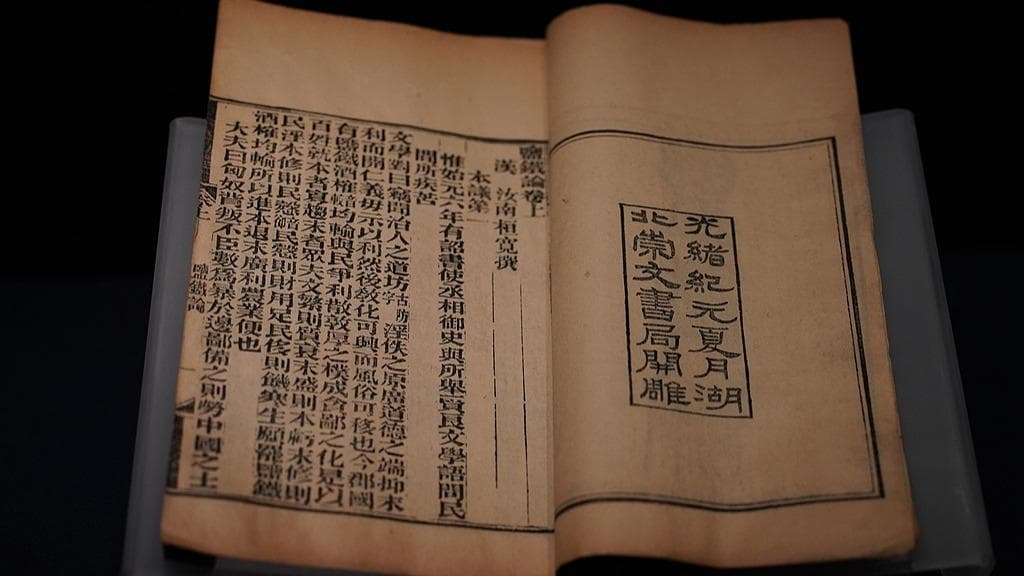 光緒紀元夏月湖
北崇文書局開雕
鹽鐵論卷上
漢 汝南桓寬撰
本議第一
惟始元六年有詔書使丞相御史與所舉賢良文學語問民
間所疾苦
文學對曰竊聞治人之道坊古防字淫佚之原廣道德之端抑末
利而開仁義毋示以利然後敎化可興而風俗可移也今郡國
有鹽鐵酒榷均輸與民爭利散敦厚之樸成貪鄙之化是以
百姓就本者寡趨末者眾夫文繁則質衰末盛則本虧末修則
民淫本修則民慤民慤則財用足民侈則饑寒生願罷鹽鐵
酒榷均輸所以進本退末廣利農業便也
大夫曰匈奴背叛不臣數爲寇暴於邊鄙備之則勞中國之士
卷上
鹽鐵論